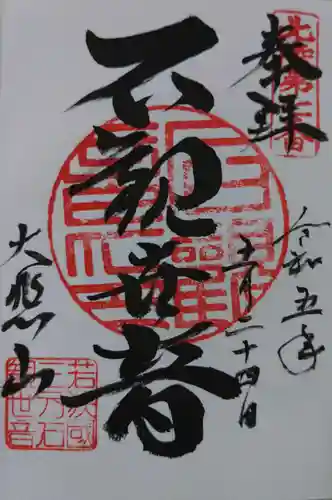 奉拝
石観世音
令和五年
十一月二十四日
大悲山
若狭國
三方石
観世音